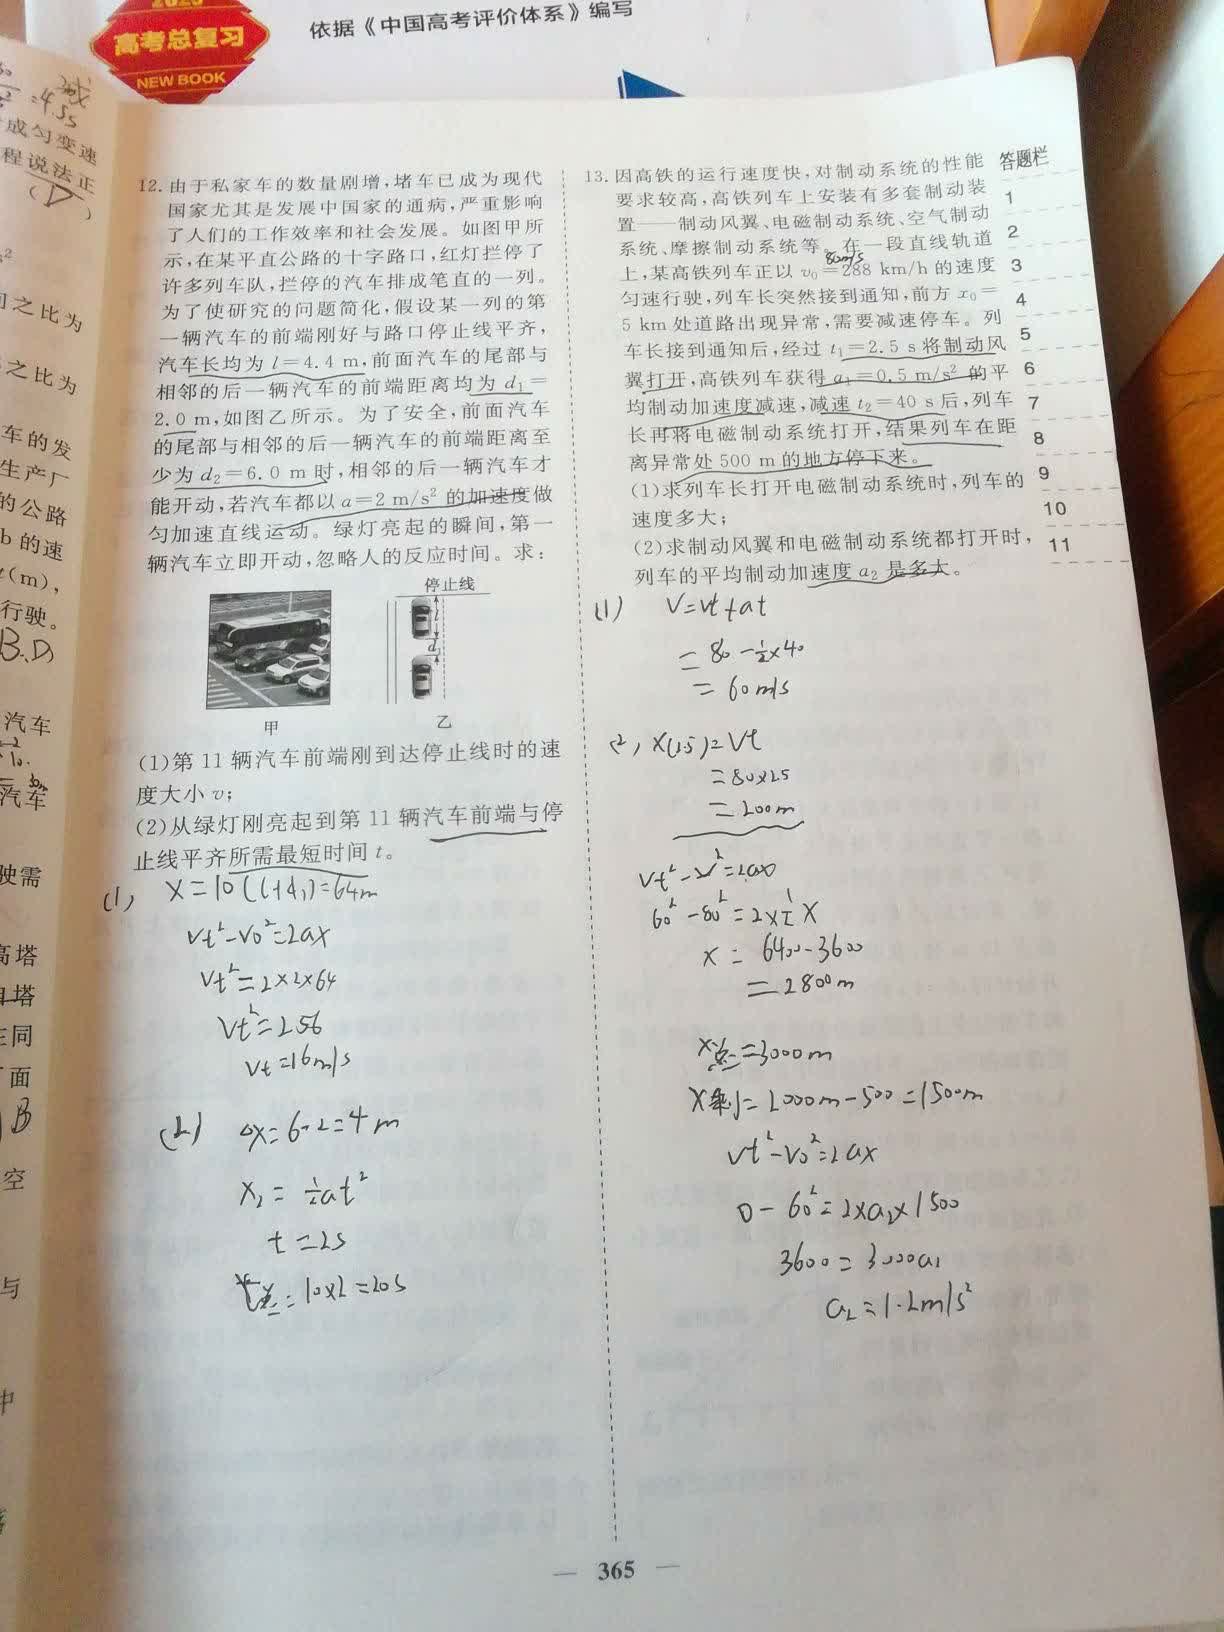 2025
高考总复习
NEW BOOK
依据《中国高考评价体系》编写
=4.5s
成匀变速
程说法正
(D)
之比为
之比为
车的发
生产厂
的公路
b 的速
t(m),
行驶。
B.D)
汽车
汽车
驶需
高塔
同
面
B
空
与
中
12.由于私家车的数量剧增,堵车已成为现代
国家尤其是发展中国家的通病,严重影响
了人们的工作效率和社会发展。如图甲所
示,在某平直公路的十字路口,红灯拦停了
许多列车队,拦停的汽车排成笔直的一列。
为了使研究的问题简化,假设某一列的第
一辆汽车的前端刚好与路口停止线平齐,
汽车长均为 l=4.4 m,前面汽车的尾部与
相邻的后一辆汽车的前端距离均为 d₁=
2.0 m,如图乙所示。为了安全,前面汽车
的尾部与相邻的后一辆汽车的前端距离至
少为 d₂=6.0 m 时,相邻的后一辆汽车才
能开动,若汽车都以 a=2 m/s² 的加速度做
匀加速直线运动。绿灯亮起的瞬间,第一
辆汽车立即开动,忽略人的反应时间。求:
停止线
l
d₁
甲
乙
(1)第 11 辆汽车前端刚到达停止线时的速
度大小 v;
(2)从绿灯刚亮起到第 11 辆汽车前端与停
止线平齐所需最短时间 t。
(1) x=10(l+d₁)=64m
Vt²-V0²=2ax
Vt²=2×2×64
Vt²=256
Vt=16m/s
(2) Δx=6-2=4m
x₂=½at²
t=2s
t总=10×2=20s
13.因高铁的运行速度快,对制动系统的性能
要求较高,高铁列车上安装有多套制动装
置——制动风翼、电磁制动系统、空气制动
系统、摩擦制动系统等。在一段直线轨道
80m/s
上,某高铁列车正以 v₀=288 km/h 的速度
匀速行驶,列车长突然接到通知,前方 x₀=
5 km 处道路出现异常,需要减速停车。列
车长接到通知后,经过 t₁=2.5 s 将制动风
翼打开,高铁列车获得 a₁=0.5 m/s² 的平
均制动加速度减速,减速 t₂=40 s 后,列车
长再将电磁制动系统打开,结果列车在距
离异常处 500 m 的地方停下来。
(1)求列车长打开电磁制动系统时,列车的
速度多大;
(2)求制动风翼和电磁制动系统都打开时,
列车的平均制动加速度 a₂ 是多大。
(1) V=Vt+at
=80-½×40
=60m/s
(2) x(2.5)=Vt
=80×2.5
=200m
Vt²-V²=2ax
60²-80²=2×½x
x=6400-3600
=2800m
x总=3000m
x剩=2000m-500=1500m
Vt²-V0²=2ax
0-60²=2×a₂×1500
3600=3000a₂
a₂=1.2m/s²
答题栏
1
2
3
4
5
6
7
8
9
10
11
— 365 —